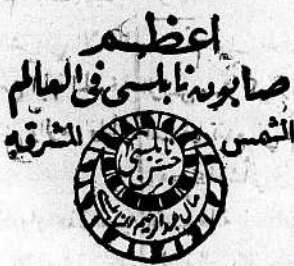 اعظم
صابون نابلسي في العالم
الشمس المشرقه
نابلسي
حسن